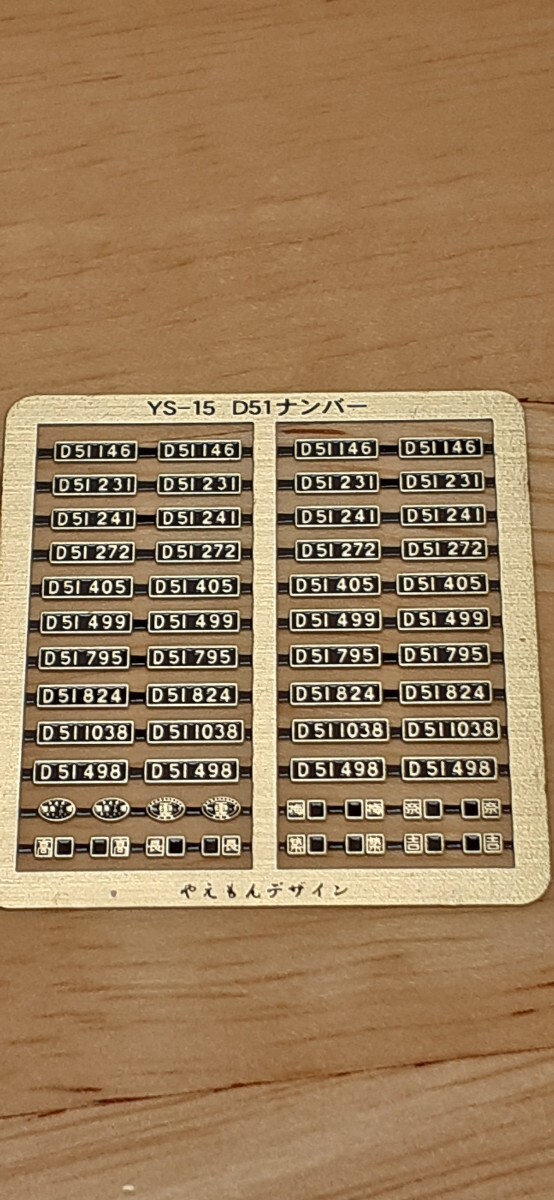 YS-15 D51ナンバー
D51 146 D51 146 D51 146 D51 146
D51 231 D51 231 D51 231 D51 231
D51 241 D51 241 D51 241 D51 241
D51 272 D51 272 D51 272 D51 272
D51 405 D51 405 D51 405 D51 405
D51 499 D51 499 D51 499 D51 499
D51 795 D51 795 D51 795 D51 795
D51 824 D51 824 D51 824 D51 824
D51 1038 D51 1038 D51 1038 D51 1038
D51 498 D51 498 D51 498 D51 498
梅 梅 奈 奈
高 高 長 長 築 築 吉 吉
やえもんデザイン